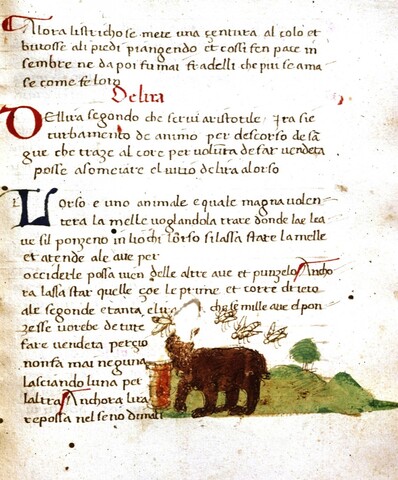 Allora listricho se mete una centura al colo et
butosse ali piedi piangendo et cossi fen pace in
sembre ne da poi fu mai fradelli che piu se ama
se come fe loro
De lira
De llira segondo che scrivi aristotile · Ira sie
turbamento de animo per descorso de sã
gue che traze al core per volũta de far vendeta
posse asomeiare el vitio de lira alorso
Lorso e uno animale e quale magna volen
tera la melle voglandola trare donde la e lea
ve sil ponzeno in li ochi lorso si lassa stare la melle
et atende ale ave per
occiderle possa vien delle altre ave et punzelo Ancho
ra lassa star quelle zoe le prime et corre drieto
ale segonde e tanta e lira che se mille ave el pon
zesse vorebe de tute
fare vendeta per zo
non fa mai neguna
lasciando luna per
laltra Anchora lira
reposa nel seno di